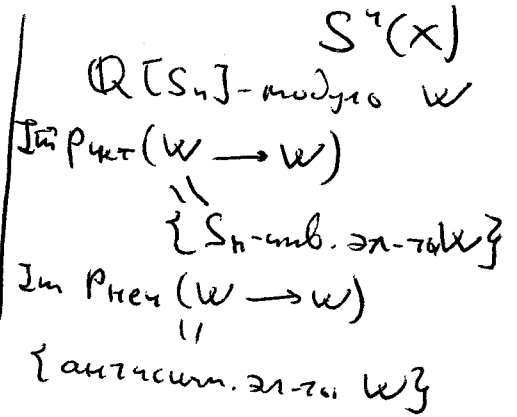 Sⁿ(X)
ℚ[Sₙ]-модуль W
Im (W → W)
{Sₙ-инв. эл-ты W}
Im Pнеч (W → W)
{антисим. эл-ты W}